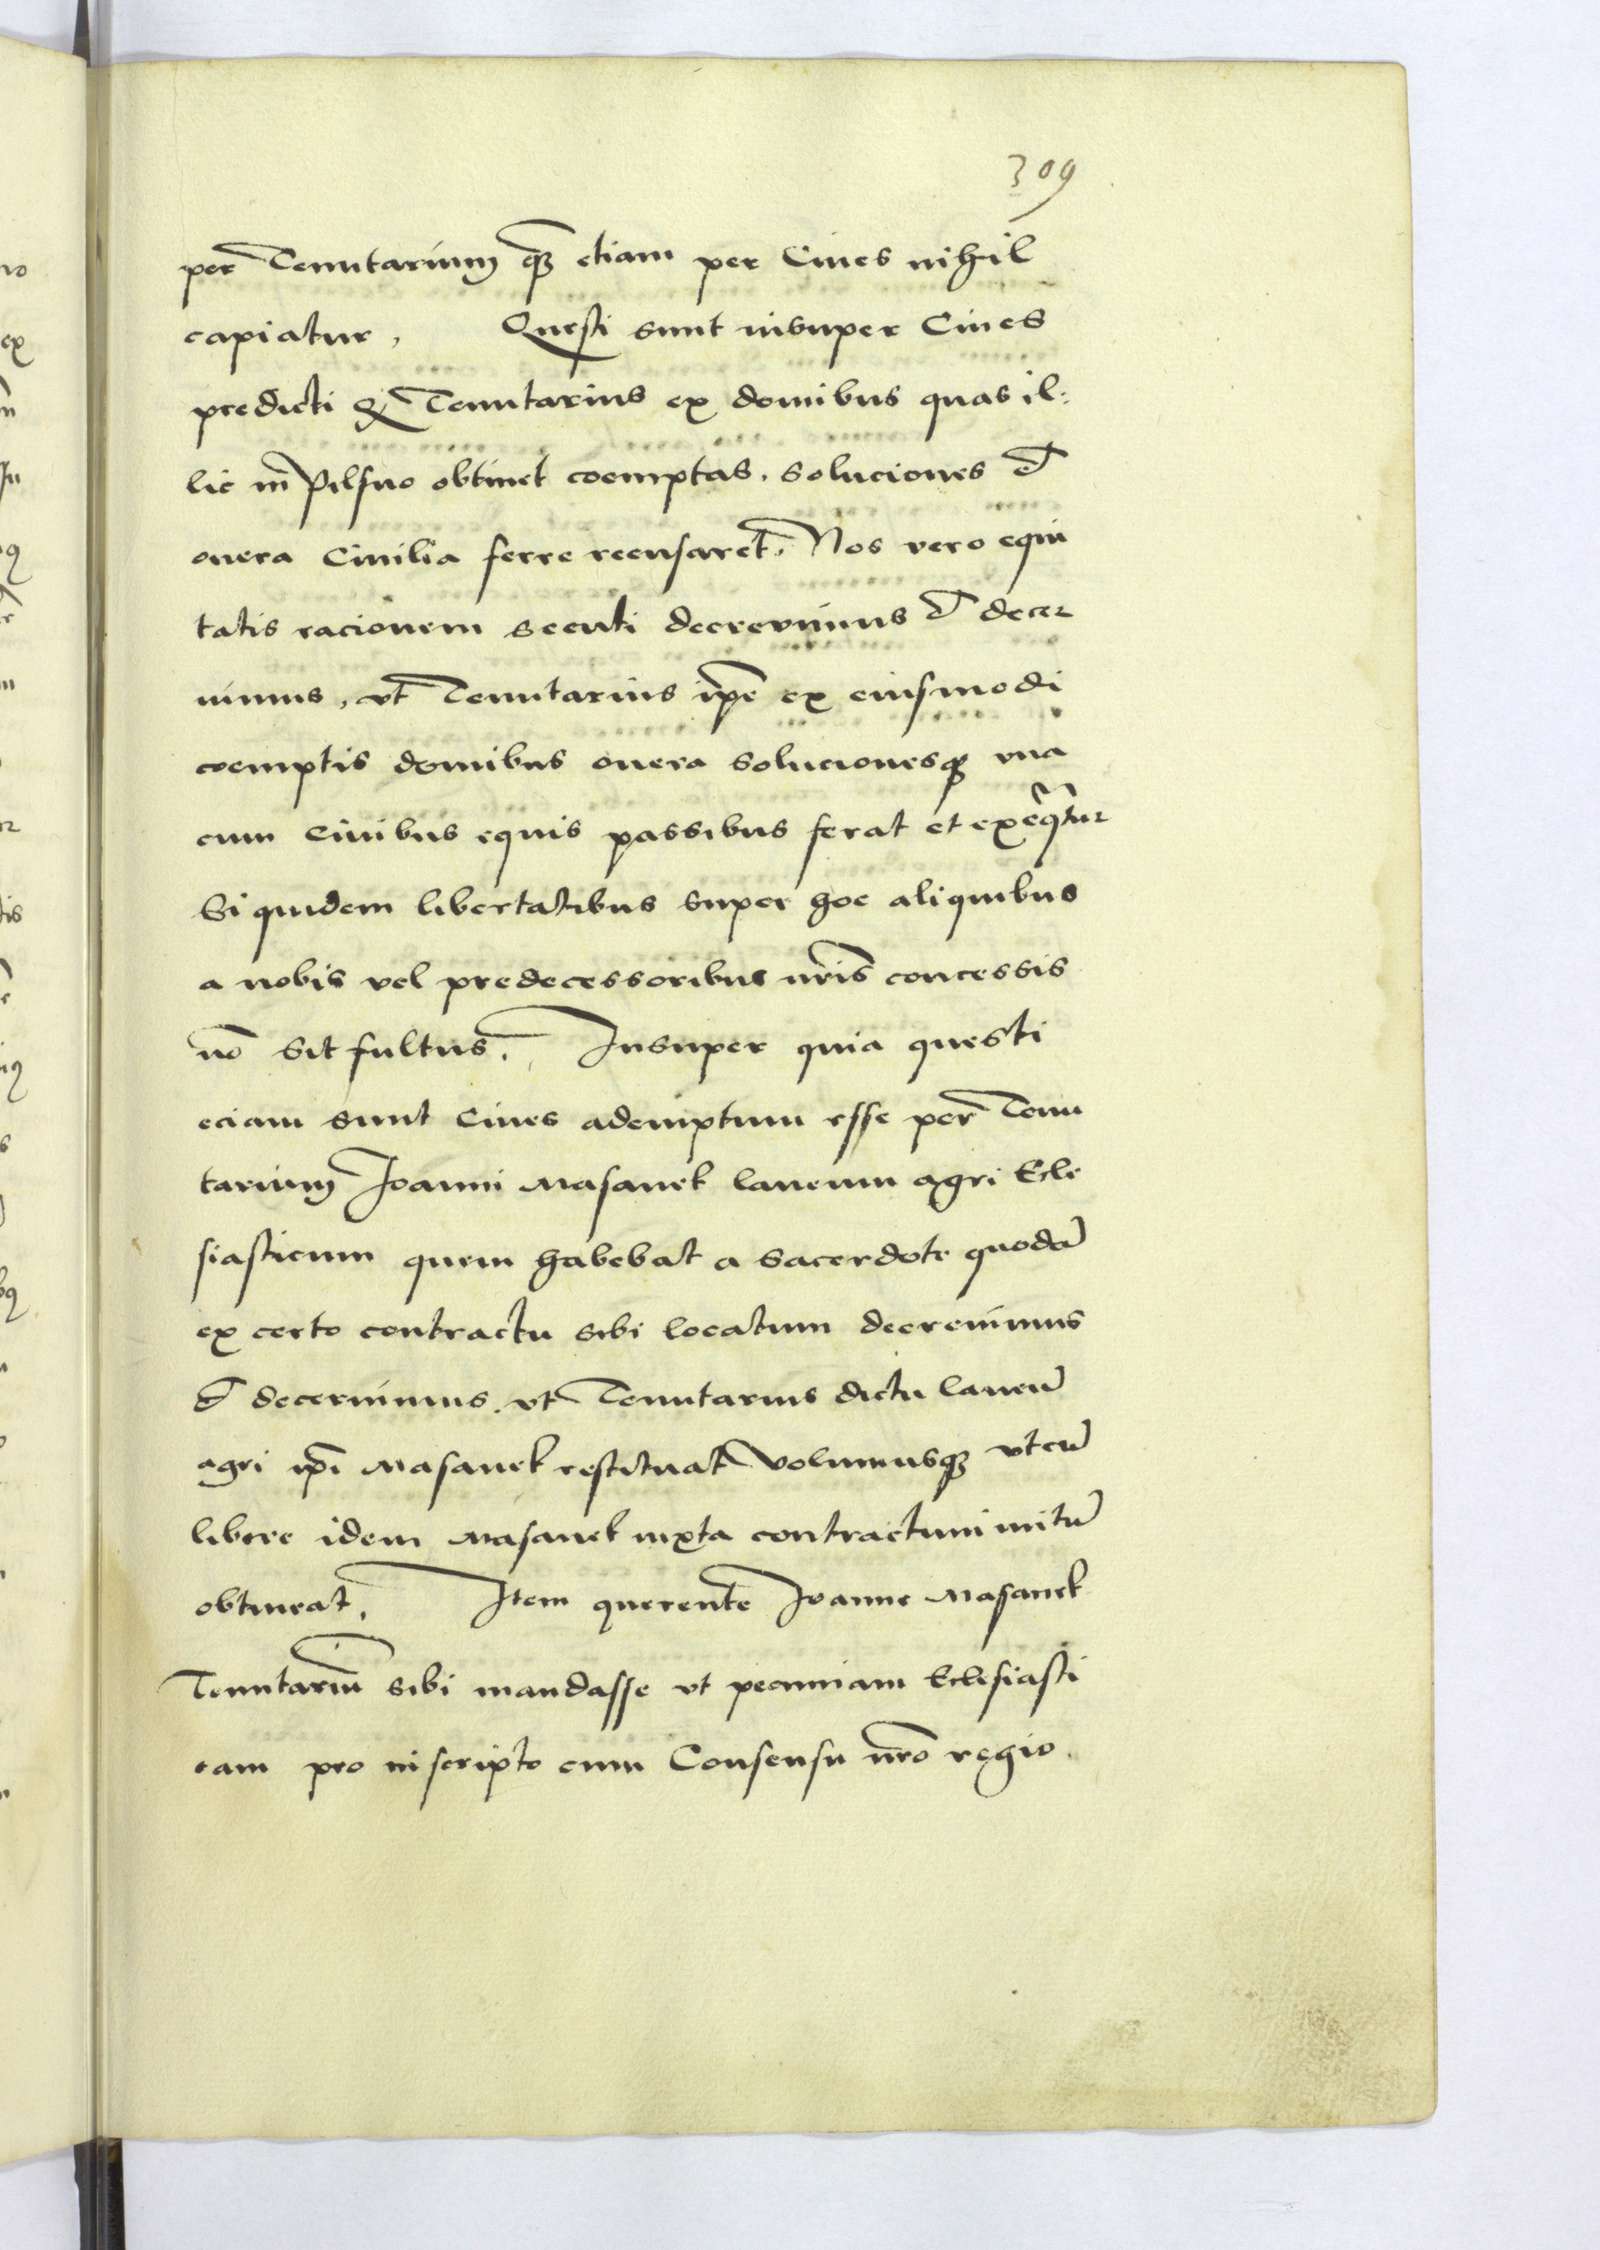 309
per Tenutarium q̃ꝫ etiam per Ciues nihil
capiatur, Questi sunt insuper Ciues
predicti qꝫ Tenutarius ex domibus quas il:
lic in Pilsno obtinet coemptas, soluciones et
onera Ciuilia ferre recusaret, Nos vero equi
tatis racionem secuti decrevimus et decer
nimus, vt Tenutarius ip̃e ex eiusmodi
coemptis domibus onera solucionesqꝫ vna
cum Ciuibus equis passibus ferat et exeq̃tur
Si quidem libertatibus super hoc aliquibus
a nobis vel predecessoribus nr̃is concessis
nõ sit fultus, Insuper quia questi
eciam sunt Ciues ademptum esse per Tenu
tarium Joanni Masanek laneum agri Ecle
siasticum quem habebat a Sacerdote quodã
ex certo contractu sibi locatum decreuimus
et decernimus, vt Tenutarius dictũ laneũ
agri ip̃i Masanek restituat volumusqꝫ vt eũ
libere idem Masanek iuxta contractum initũ
obtineat, Item querente Joanne Masanek
Tenutariũ sibi mandasse vt pecuniam Eclesiasti
cam pro inscripto cum Consensu nr̃o regio